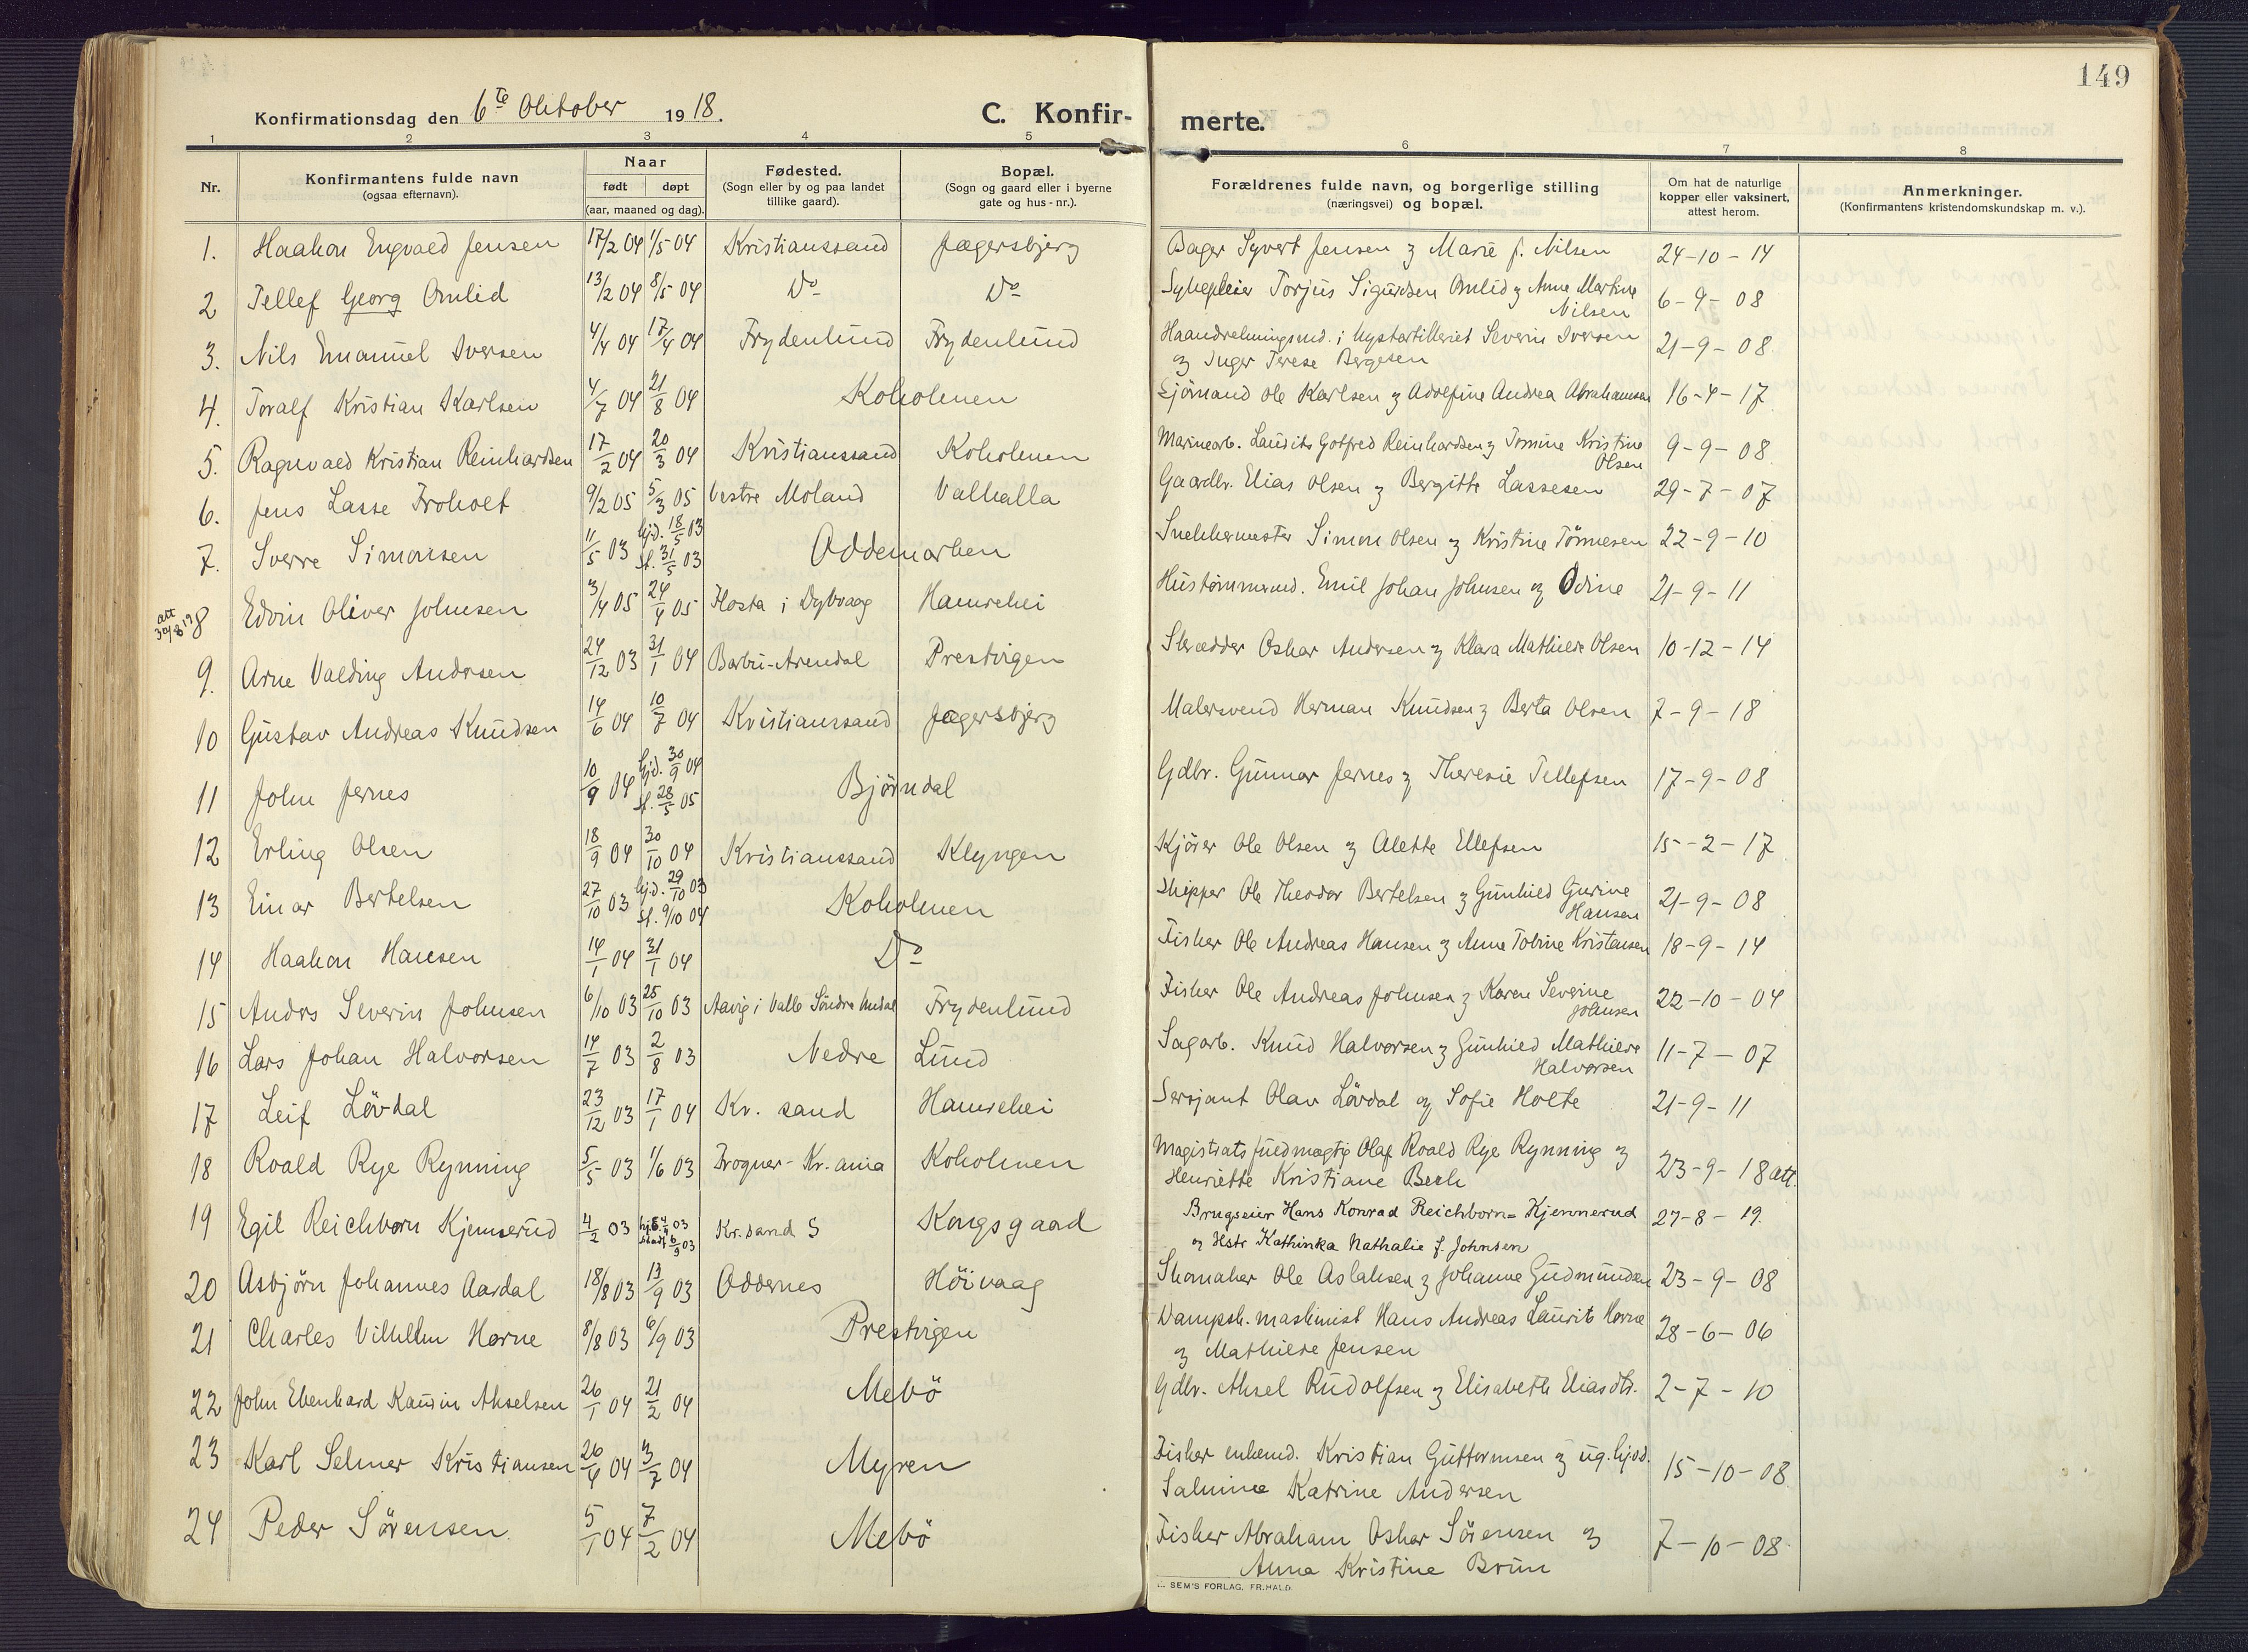 149
Konfirmationsdag den 6te Oktober 1918.
C. Konfir- merte.
1 2 3 4 5 6 7 8
Nr.
Konfirmantens fulde navn
(ogsaa efternavn).
Naar
født døpt
(aar, maaned og dag).
Fødested.
(Sogn eller by og paa landet
tillike gaard).
Bopæl.
(Sogn og gaard eller i byerne
gate og hus-nr.).
Forældrenes fulde navn, og borgerlige stilling
(næringsvei) og bopæl.
Om hat de naturlige
kopper eller vaksinert,
attest herom.
Anmerkninger.
(Konfirmantens kristendomskundskap m. v.).
1. Haakon Engvald Jensen 17/2 04 1/5 04 Kristianssand Jægersbjerg Bager Syvert Jensen og Marie f. Nilsen 24-10-14
2 Tellef Georg Omlid 13/2 04 8/5 04 Do Do Sykepleier Torjus Sigurdsen Omlid og Anne Martine
Nilsen 6-9-08
3. Nils Emanuel Iversen 4/4 04 17/4 04 Frydenlund Frydenlund Haandrekningsmd. i kystartilleriet Severin Iversen
og Inger Terese Bergesen 21-9-08
4. Toralf Kristian Karlsen 4/7 04 21/8 04 Koholmen Sjömand Ole Karlsen og Adolfine Andrea Abrahamsen 16-4-17
5. Ragnvald Kristian Reinhardsen 17/2 04 20/3 04 Kristianssand Koholmen Marinearb. Laurits Gotfred Reinhardsen og Tomine Kristine
Olsen 9-9-08
6. Jens Lasse Froholt 9/2 05 5/3 05 Vestre Moland Valhalla Gaardbr. Elias Olsen og Bergitte Lassesen 29-7-07
7. Sverre Simonsen 11/5 03 hjd. 18/5 03
st. 31/5 03 Oddemarken Snekkermester Simon Olsen og Kristine Tönnesen 22-9-10
att 30/8 19 8 Edvin Oliver Johnsen 3/4 05 24/4 05 Flosta i Dybvaag Hamrehei Hustömmermd. Emil Johan Johnsen og Odine 21-9-11
9. Arne Valding Andersen 24/12 03 31/1 04 Barbu-Arendal Prestvigen Skrædder Oskar Andersen og Klara Mathilde Olsen 10-12-14
10 Gustav Andreas Knudsen 14/6 04 10/7 04 Kristianssand Jægersbjerg Malersvend Herman Knudsen og Berta Olsen 7-9-18
11 John Jernes 10/9 04 hjd. 30/9 04
st. 28/5 05 Björndal Gdbr. Gunnar Jernes og Theresie Tellefsen 17-9-08
12 Erling Olsen 18/9 04 30/10 04 Kristianssand Klyngen Kjörer Ole Olsen og Alette Ellefsen 15-2-17
13 Einar Bertelsen 27/10 03 hjd. 29/10 03
st. 9/10 04 Koholmen Skipper Ole Theodor Bertelsen og Gunhild Gurine
Hansen 21-9-08
14 Haakon Hansen 14/1 04 31/1 04 Do Fisker Ole Andreas Hansen og Anne Tobine Kristansen 18-9-14
15 Anders Severin Johnsen 6/10 03 25/10 03 Aavig i Valle Söndre Undal Frydenlund Fisker Ole Andreas Johnsen og Karen Severine
Johnsen 22-10-04
16 Lars Johan Halvorsen 14/7 03 2/8 03 Nedre Lund Sagarb. Knud Halvorsen og Gunhild Mathilde
Halvorsen 11-7-07
17 Leif Lövdal 23/12 03 17/1 04 Kr. sand Hamrehei Sersjant Olav Lövdal og Sofie Holte 21-9-11
18 Roald Rye Rynning 5/5 03 1/6 03 Frogner-Kr. ania Koholmen Magistratsfuldmægtig Olaf Roald Rye Rynning og
Henriette Kristiane Bech 23-9-18 att.
19 Egil Reichborn Kjennerud 4/2 03 Kr. sand S Kongsgaard Brugseier Hans Konrad Reichborn-Kjennerud
og Hstr Kathinka Nathalie f. Johnsen 27-8-19.
20 Asbjörn Johannes Aardal 18/8 03 13/9 03 Oddernes Höivaag Skomaker Ole Aslaksen og Johanne Gudmundsen 23-9-08
21 Charles Vilhelm Horne 8/8 03 6/9 03 Prestvigen Dampsk. maskinist Hans Andreas Laurits Horne
og Mathilde Jensen 28-6-06
22 John Ebenhard Kaurin Akselsen 26/1 04 21/2 04 Mebö Gdbr. Aksel Rudolfsen og Elisabeth Eliasdtr. 2-7-10
23 Karl Selmer Kristiansen 26/4 04 3/7 04 Myren Fisker enkemd. Kristian Guttormsen og ug. hjvd.
Salmine Katrine Andersen 15-10-08
24 Peder Sörensen 5/1 04 7/2 04 Mebö Fisker Abraham Oskar Sörensen og
Anna Kristine Brun 7-10-08
SEM'S FORLAG, FR.HALD.